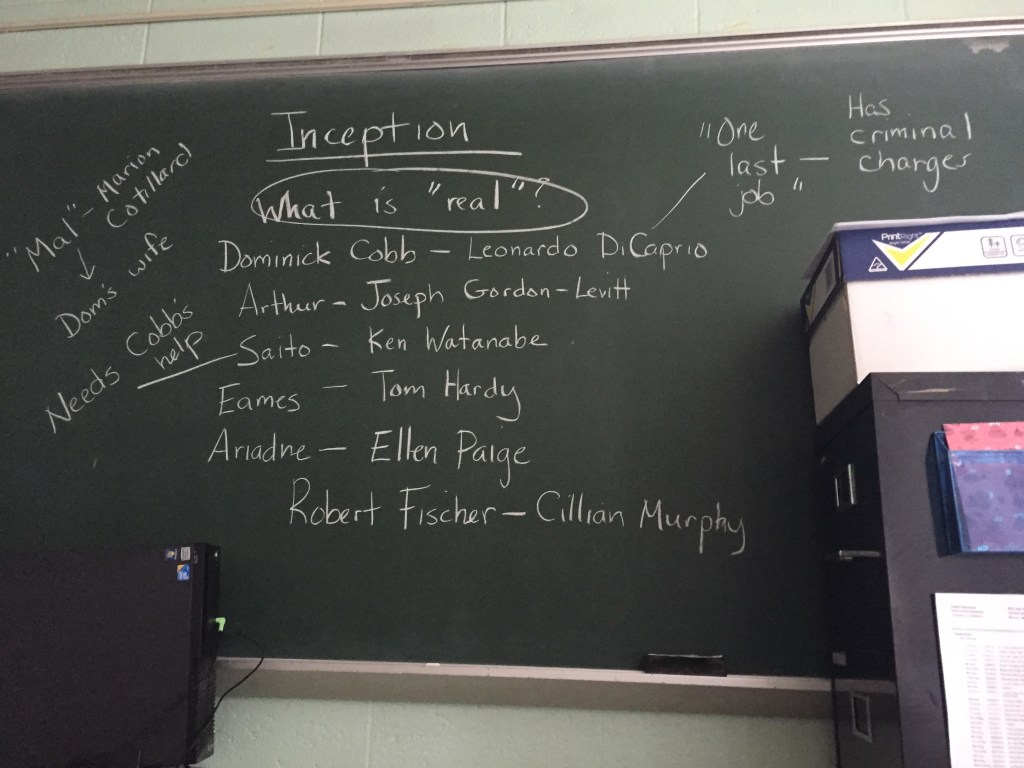 Inception
What is "real"?
"Mal" - Marion
Cotillard
Dom's wife
"One
last — Has
job" criminal
charges
Dominick Cobb - Leonardo DiCaprio
Arthur - Joseph Gordon-Levitt
Needs Cobb's
help
Saito - Ken Watanabe
Eames - Tom Hardy
Ariadne - Ellen Paige
Robert Fischer - Cillian Murphy
PrintRight